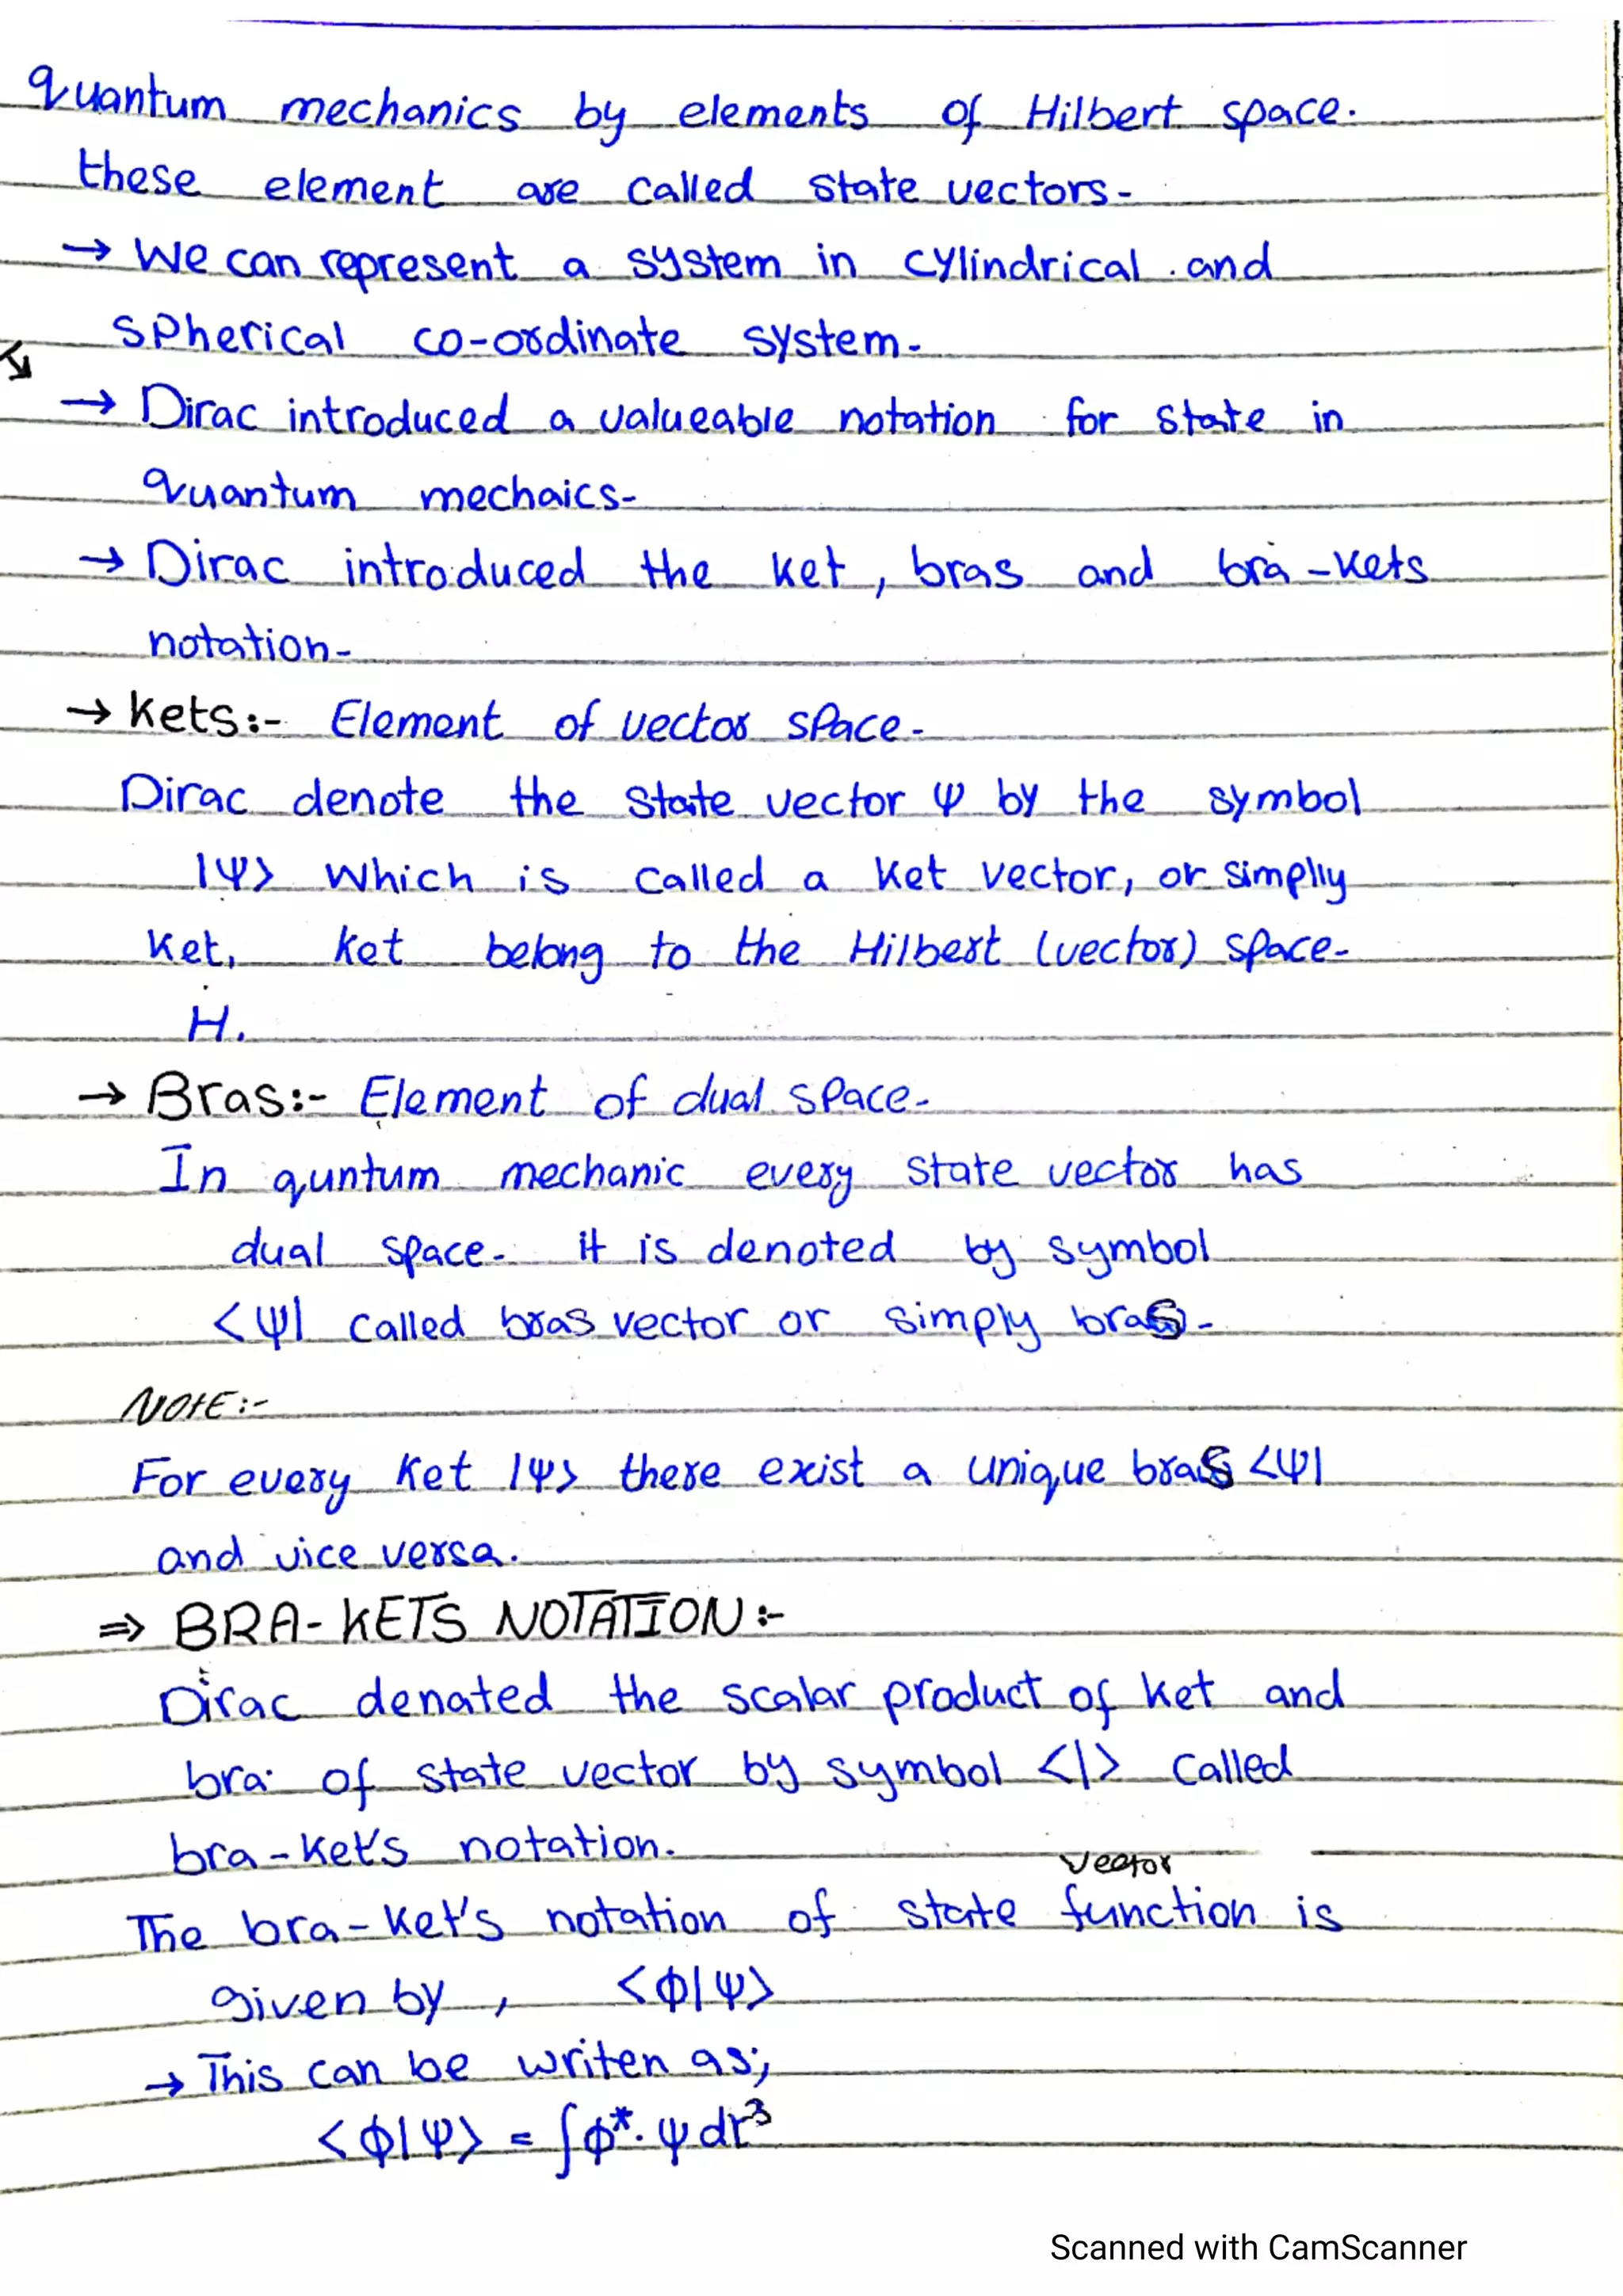 quantum mechanics by elements of Hilbert space.
these element are called state vectors-
→ We can represent a system in cylindrical and
spherical co-ordinate system-
→ Dirac introduced a valueable notation for state in
quantum mechaics-
→ Dirac introduced the ket, bras and bra-kets
notation-
→ Kets:- Element of vector space-
Dirac denote the state vector ψ by the symbol
|ψ> which is called a ket vector, or simplly
ket, ket belong to the Hilbert (vector) space-
H.
→ Bras:- Element of dual space-
In quntum mechanic every state vector has
dual space- it is denoted by symbol
<ψ| called bras vector or simply bras-
NOtE:-
For every ket |ψ> there exist a unique bras <ψ|
and vice versa.
⇒ BRA-KETS NOTATION:-
Dirac denated the scalar product of ket and
bra of state vector by symbol <|> called
bra-ket's notation.
vector
The bra-ket's notation of state function is
given by, <ϕ|ψ>
→ This can be writen as;
<ϕ|ψ> = ∫ϕ*.ψdr³
Scanned with CamScanner